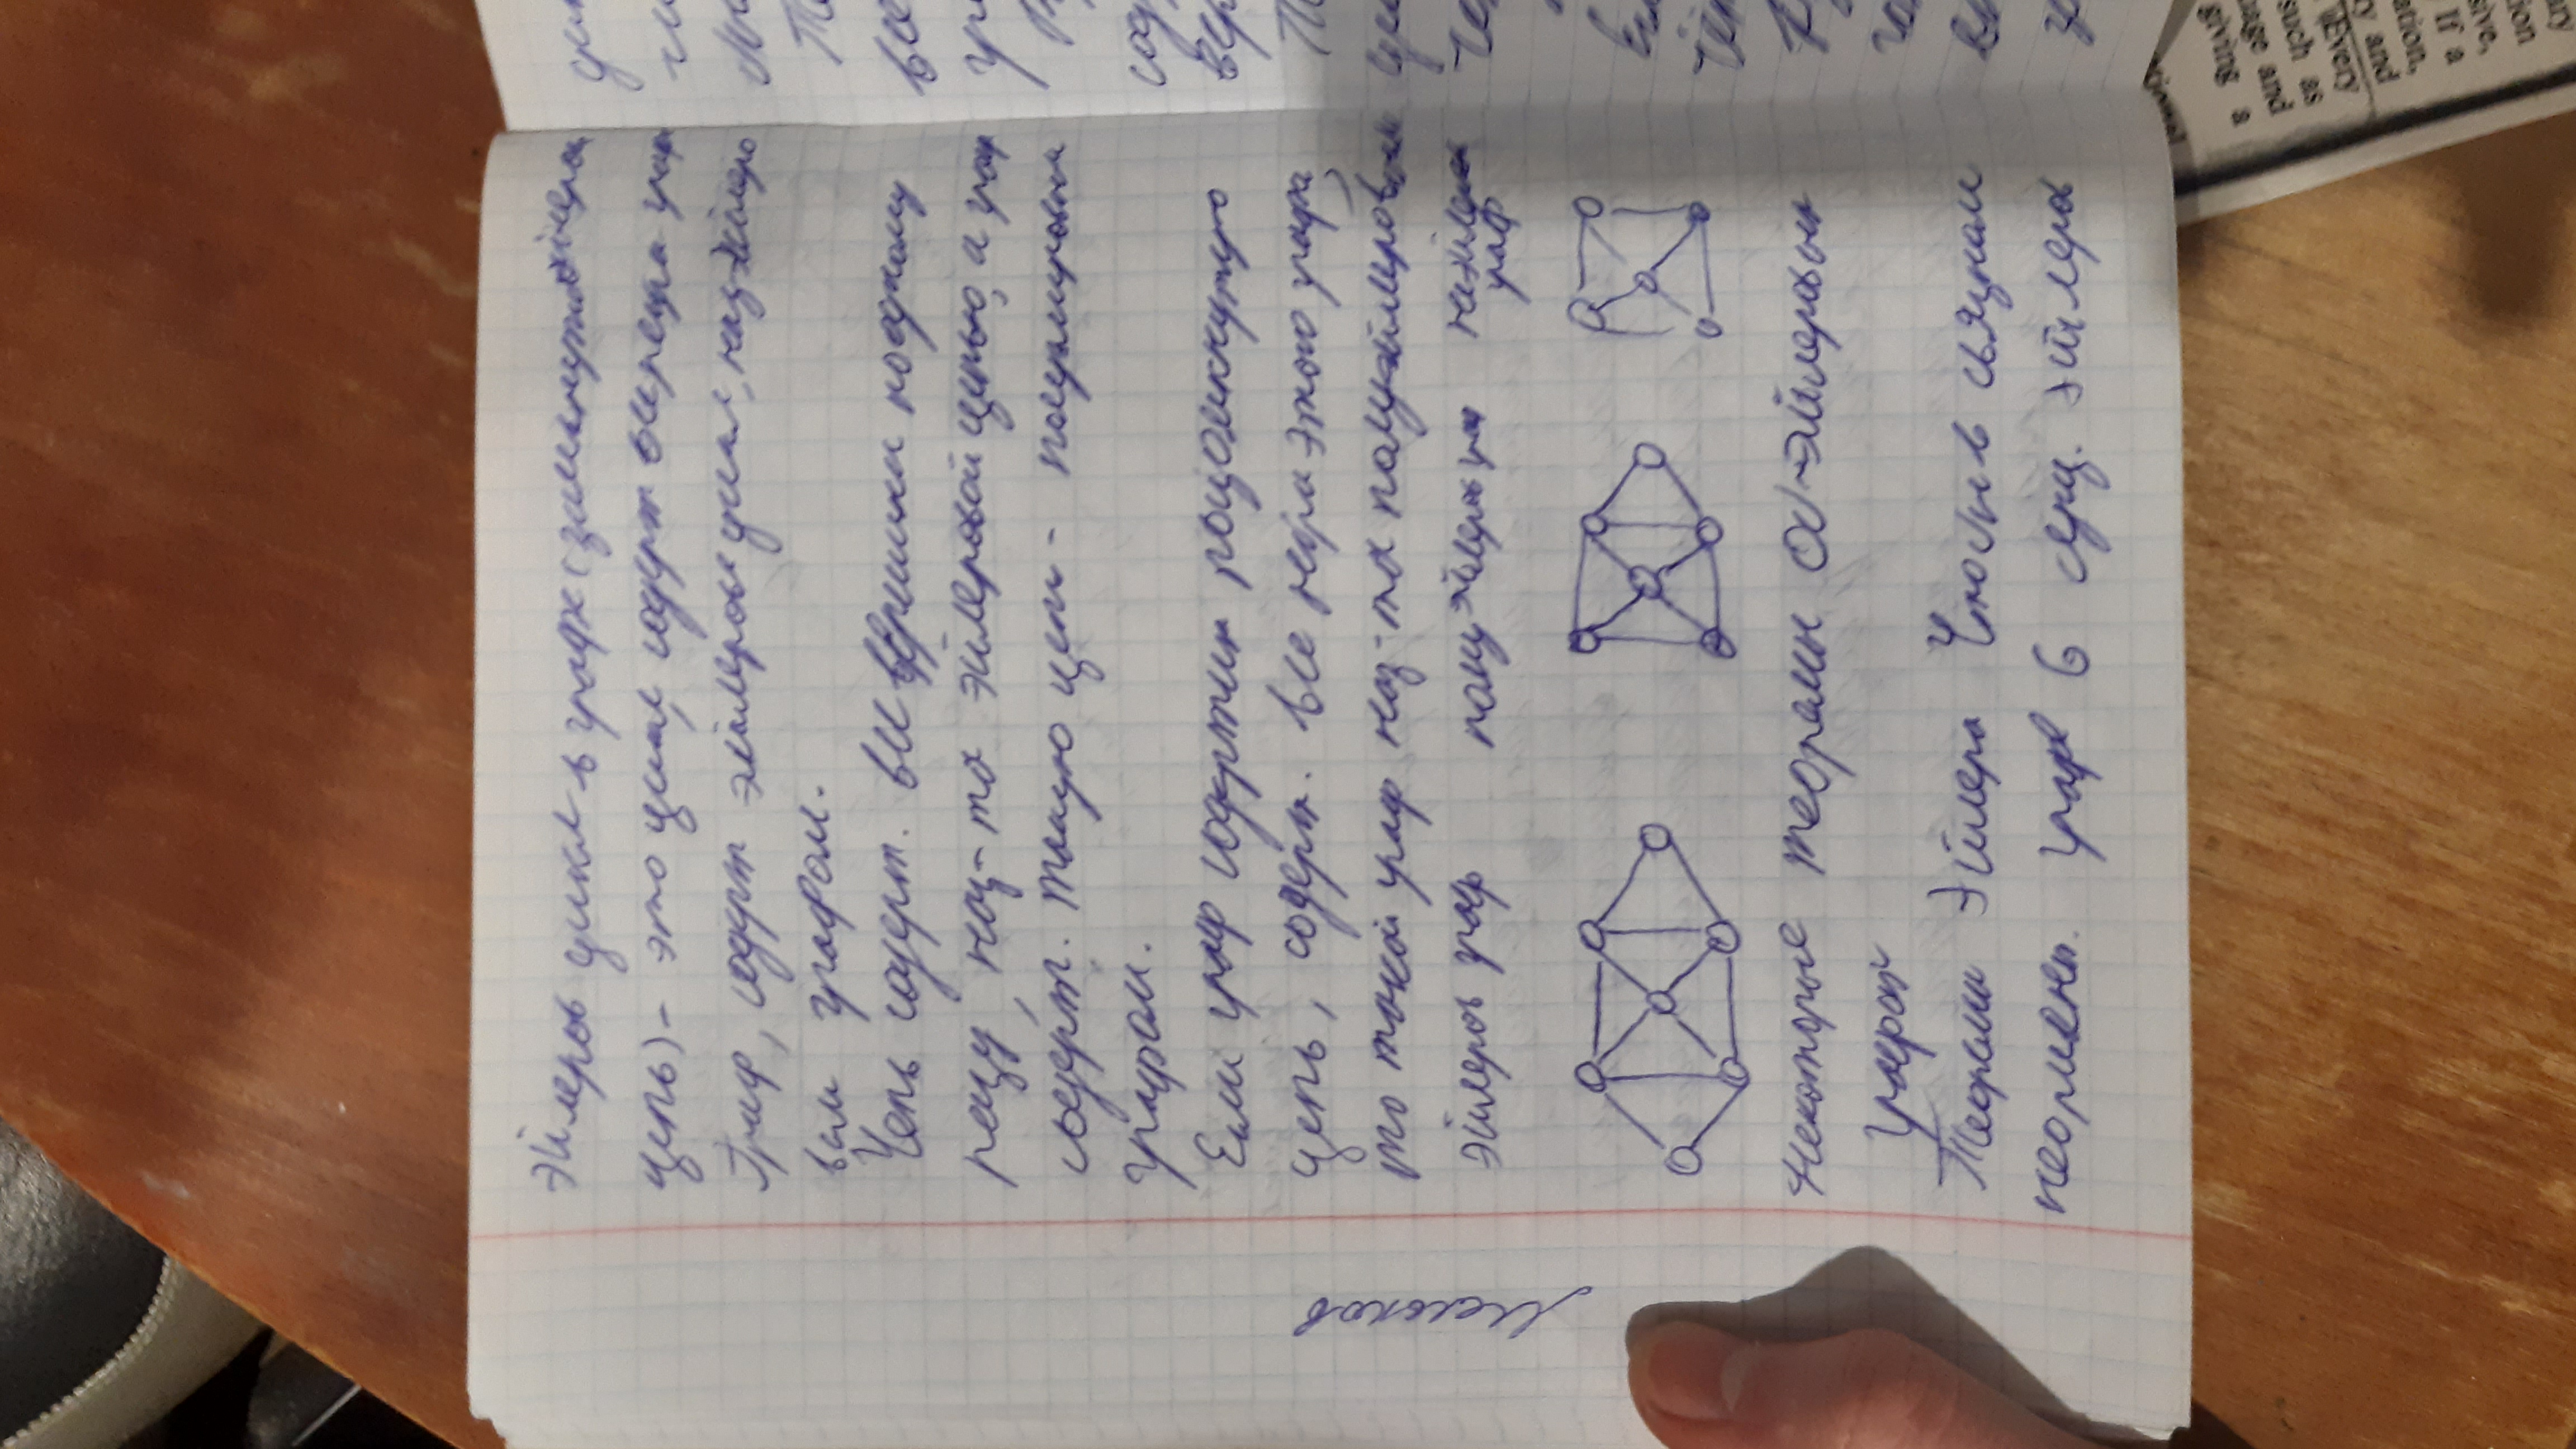 Эйлеров цикл в графе (замкнутая эйлерова
цепь) - это цикл, содерж все ребра графа
Граф, содерж эйлеров цикл, наз эйлеро
вым графом.
Цепь содерж. все вершины по одному
разу, наз-тся эйлеровой цепью, а граф
содерж. такую цепь - полуэйлеровым
графом.
Если граф содержит разомкнутую
цепь, содерж. все ребра этого графа,
то такой граф наз-тся полуэйлеровым
эйлеров граф полуэйлеров граф неэйлеров
граф
Некоторые теоремы об эйлеровых
графах
Теорема Эйлера Чтобы в связном
неориент. графе G сущ. эйлеров
Мельков
все
сод
вер
giving a
such as
Every
and
If a